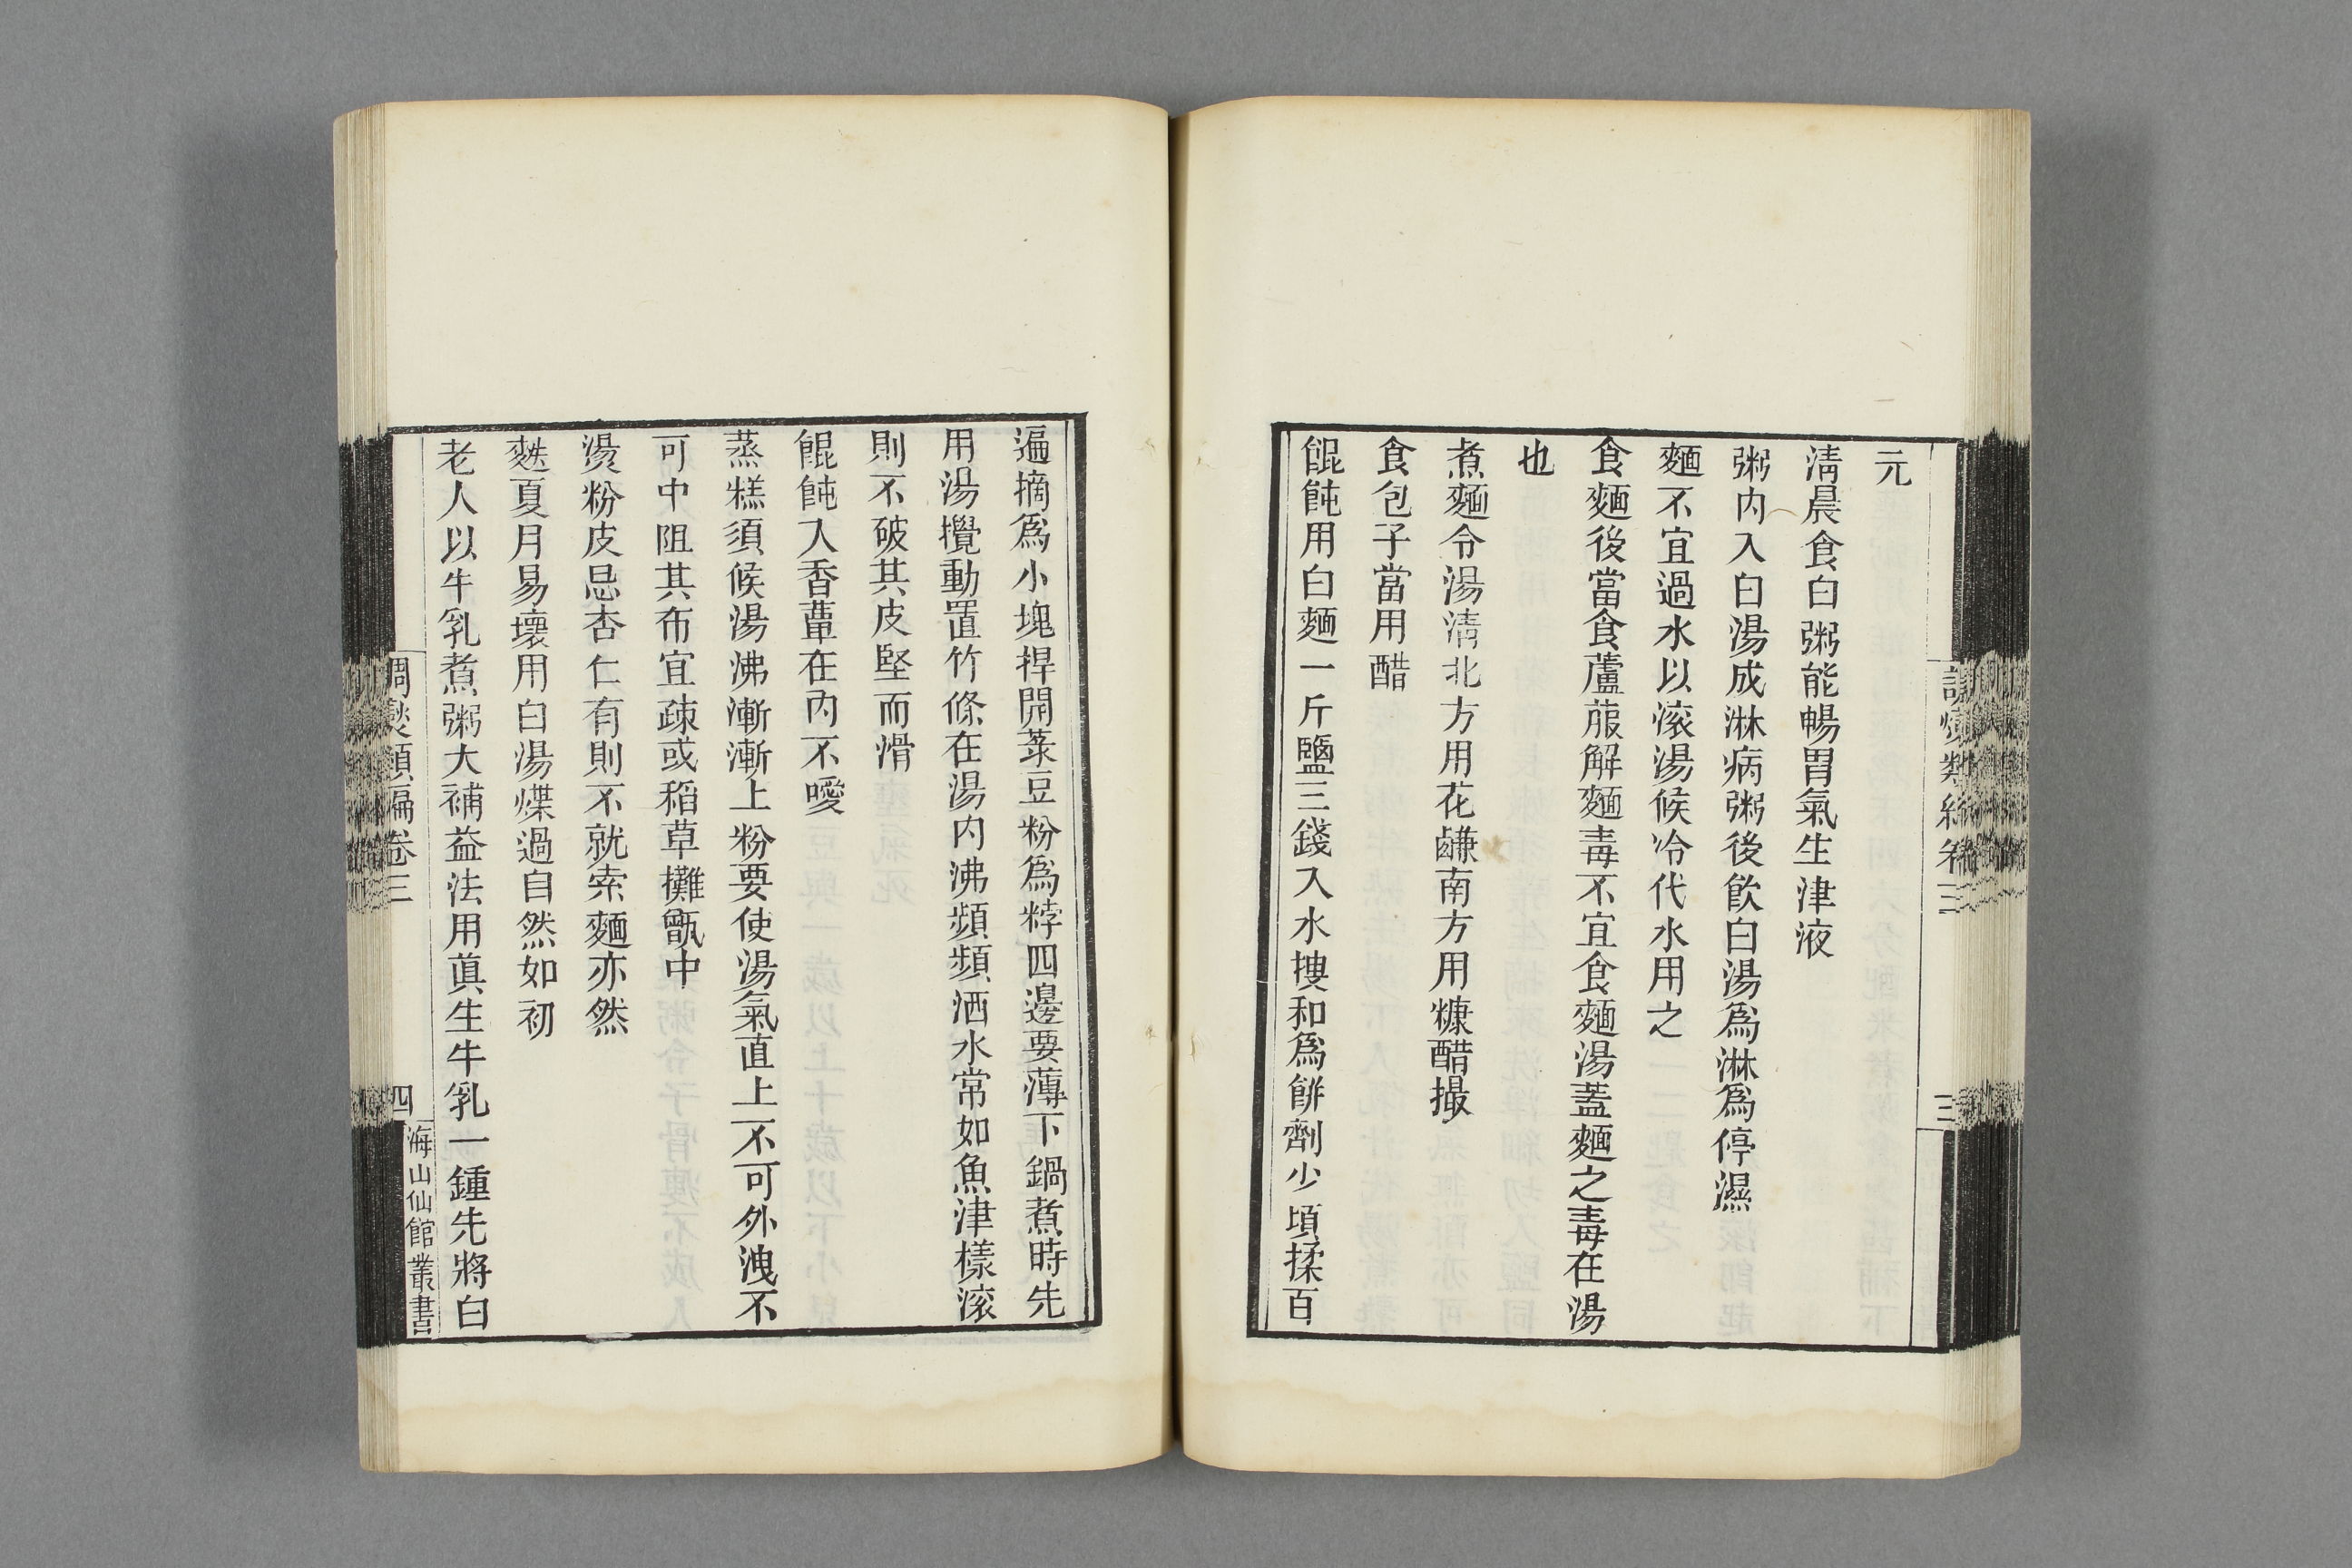 元
清晨食白粥能暢胃氣生津液
粥内入白湯成淋病粥後飲白湯爲淋爲停濕
麵不宜過水以滚湯候冷代水用之
食麵後當食蘆菔解麵毒不宜食麵湯蓋麵之毒在湯
也
煮麵令湯清北方用花鹻南方用糠醋撮
食包子當用醋
餛飩用白麵一斤鹽三錢入水摟和爲餅劑少頃揉百
遍摘爲小塊捍開菉豆粉爲𥻦四邊要薄下鍋煮時先
用湯攪動置竹條在湯内沸頻頻洒水常如魚津樣滚
則不破其皮堅而滑
餛飩入香蕈在内不噯
蒸糕須候湯沸漸漸上粉要使湯氣直上不可外洩不
可中阻其布宜疎或稻草攤甑中
燙粉皮忌杏仁有則不就索麵亦然
麩夏月易壞用白湯煠過自然如初
老人以牛乳煮粥大補益法用眞生牛乳一鍾先將白
調燮類編卷三
三
調燮類編卷三
四
海山仙館叢書